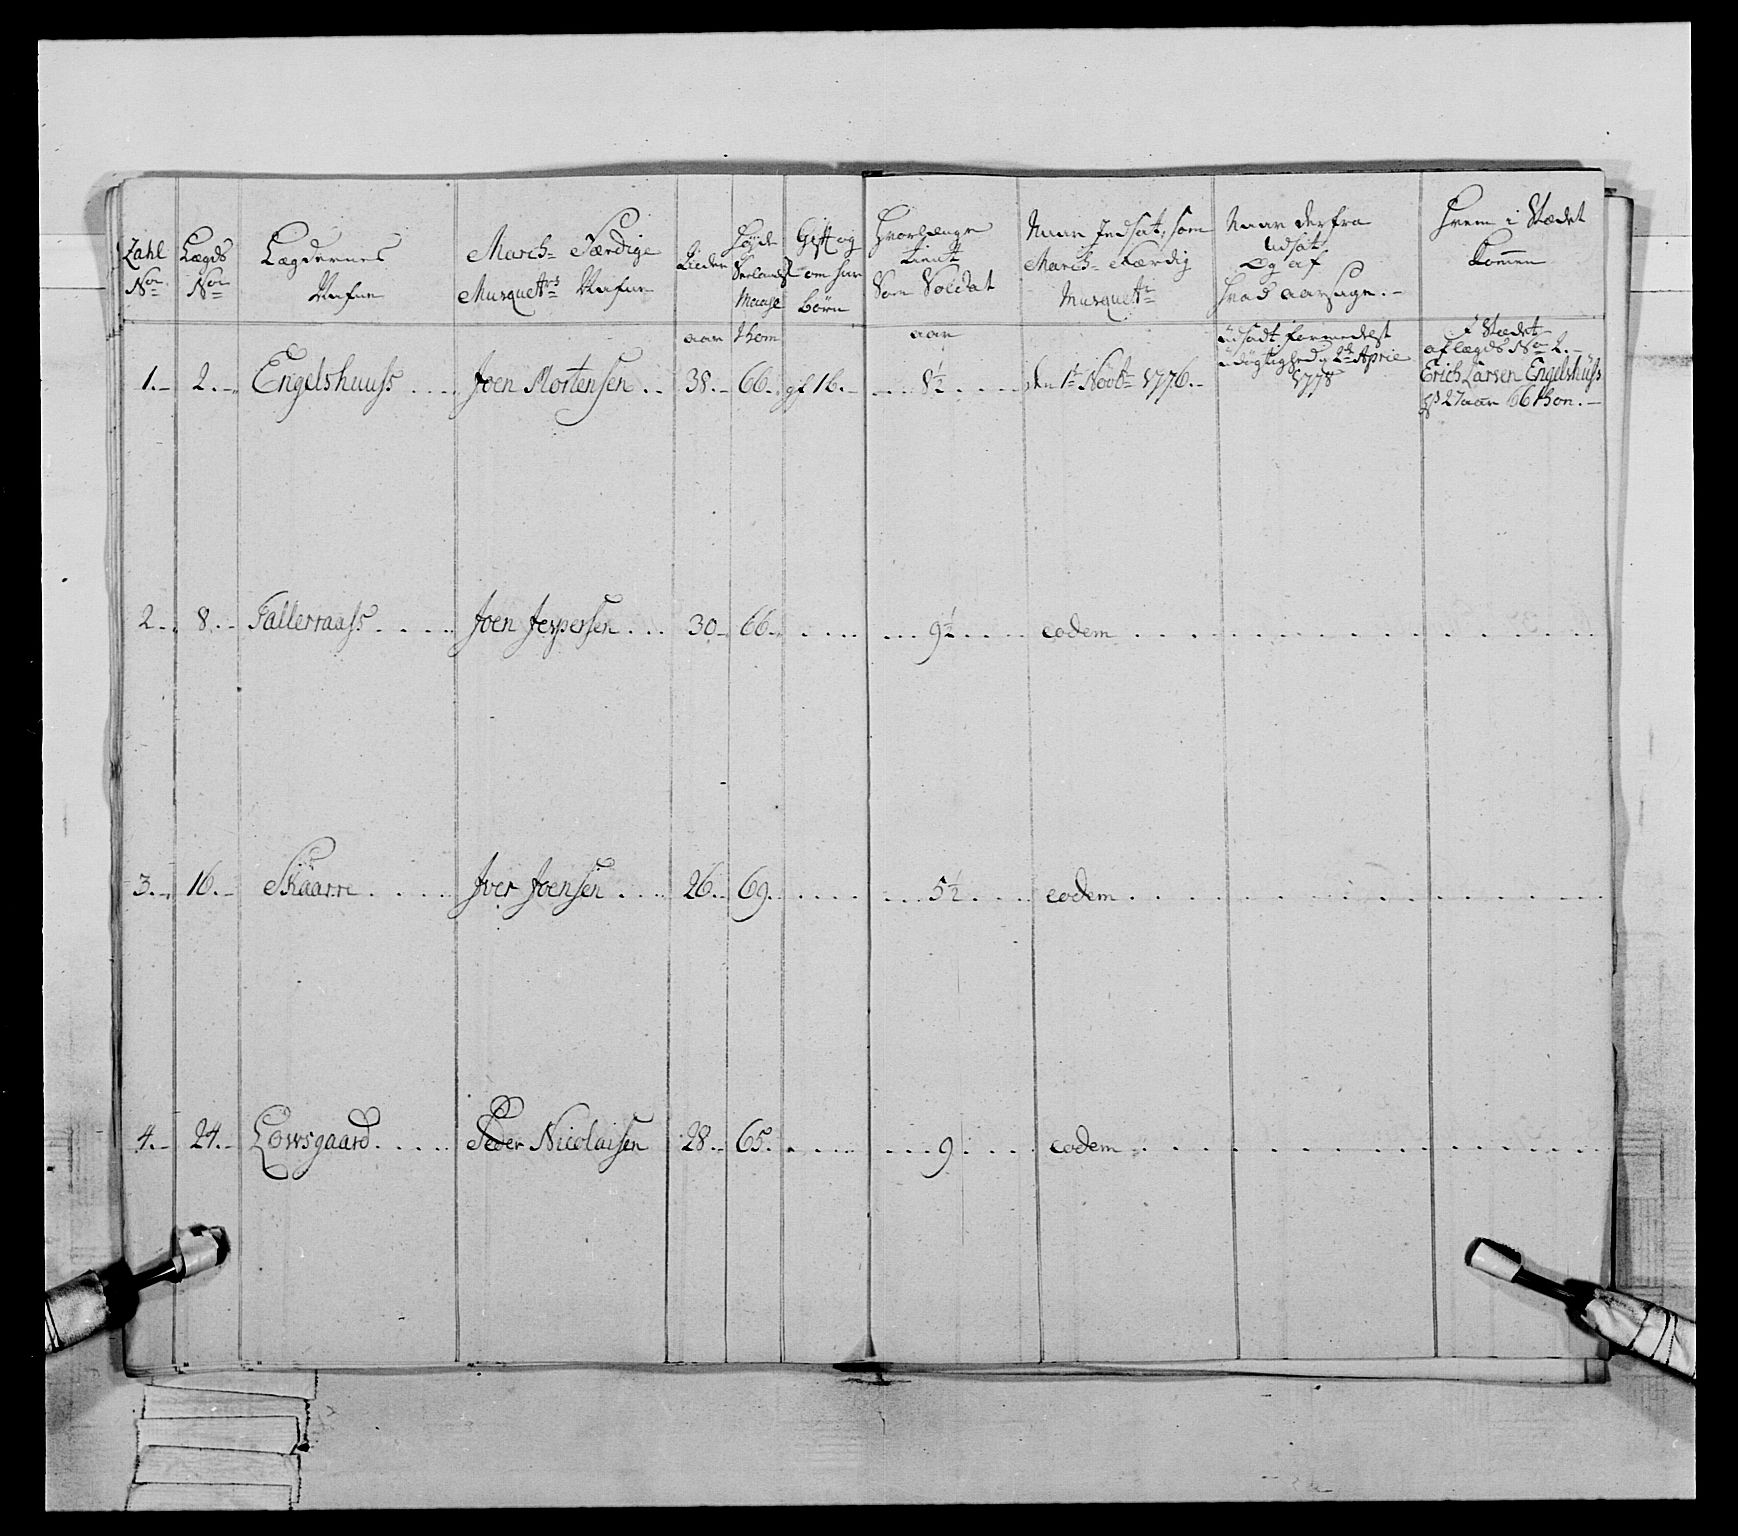 Zahl No
Lægds No
Lægdernes Nafne
March-Færdige Musquetrs Nafne
Alder
Høyde Sielands Maase
Gift og om har børn
Hvorlænge tient Som Soldat
Naar Indsat, som March-Færdig Musquetr
Naar derfra udsat, Og af hvad aarsage.-
Hvem i Stædet kommen
aar thom aar
1.- 2.- Engelshuuss .... Joen Mortensen .. 38.- 66.- gf 1b.- ... 8½ .... den 1te Novbr 1776.-
udsadt formedelst udøgtighed d 2de Aprill 1778
I Stædet af lægds No 2.- Erich Larsen Engelshuss 27 aar 66 thom.-
2.- 8.- Fallerraass ..... Joen Jespersen ... 30.- 66.- .... ... 9½ .... eodem
3.- 16.- Skaarre ..... Iver Joensen .... 26.- 69. .... ... 5½ .... eodem
4.- 24.- Lowsgaard ..... Peder Nicolaisen 28.- 65. .... ... 9 .... eodem